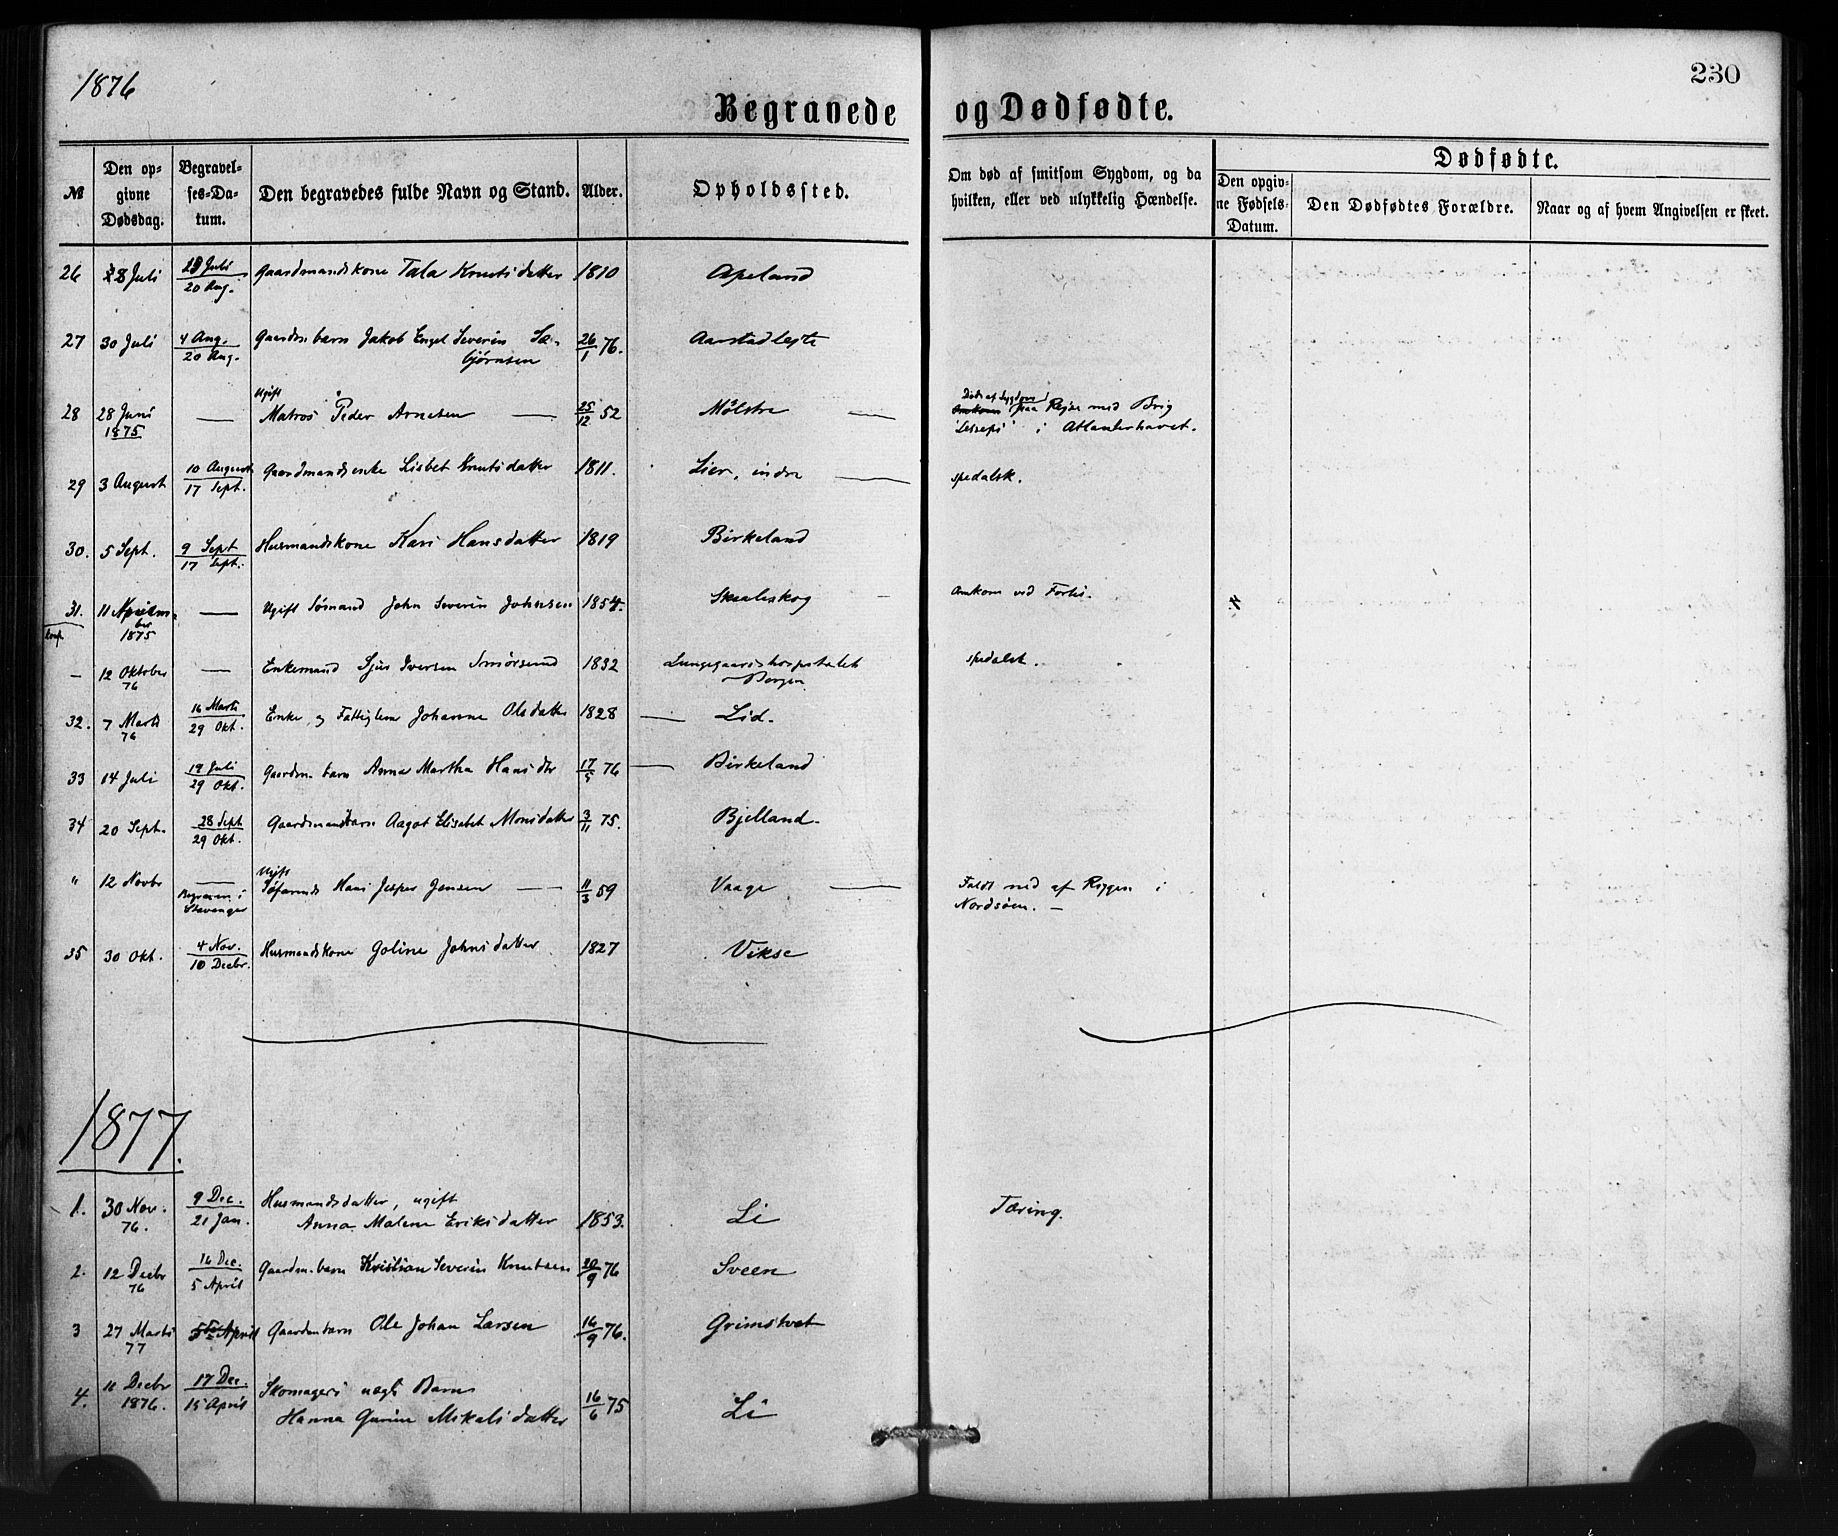 1876
230
Begravede og Dødfødte.
№
Den op-
givne
Dødsdag.
Begravel-
ses-Da-
tum.
Den begravedes fulde Navn og Stand.
Alder.
Opholdssted.
Om død af smitsom Sygdom, og da
hvilken, eller ved ulykkelig Hændelse.
Dødfødte.
Den opgiv-
ne Fødsels-
Datum.
Den Dødfødtes Forældre.
Naar og af hvem Angivelsen er skeet.
26 28 Juli 29 Juli / 20 Aug. Gaardmandskone Tala Knutsdatter 1810 Apeland
27 30 Juli 4 Aug. / 20 Aug. Gaardm. barn Jakob Engel Severin Sæ- 26/1 76. Aarstadlejte
bjørnsen
28 28 Juni — Ugift
1875 Matros Peder Arnesen — 25/12 52 Mølstre — Død af Sygdom
paa Rejse med Brig
"Lesseps" i Atlanterhavet.
29 3 August 10 August / 17 Sept. Gaardmandsenke Lisbet Knutsdatter 1811. Lier, indre — spedalsk.
30. 5 Sept. 9 Sept / 17 Sept. Husmandskone Kari Hansdatter 1819 Birkeland
31. 11 Novem- — Ugift Sømand John Severin Johnsen 1854. Skaaleskog - Omkom ved Forlis.
ber
1875
- 12 Oktober — Enkemand Sjur Iversen Smørsund 1832 Lungegaardshospitalet spedalsk.
76 Bergen
32. 7 Marts 16 Marts / 29 Okt. Enke, og Fattiglem Johanne Olsdatter 1828 — Lid.
76
33 14 Juli 19 Juli / 29 Okt. Gaardm. barn Anna Martha Hansdtr 17/5 76 — Birkeland
34 20 Sept. 28 Sept / 29 Okt. Gaardmandsbarn Aagot Elisabet Monsdatter 3/11 75. Bjelland.
" 12 Novbr — Ugift
Begraven i Søfarende Hans Jesper Jensen — 11/3 59 Vaage — Faldt ned af Riggen i
Stavanger Nordsøen. —
35 30 Okt. 4 Nov. / 10 Decbr. Husmandskone Goline Johnsdatter 1827 Vikse
1877.
1. 30 Nov. 9 Dec. / 21 Jan. Husmandsdatter, ugift
76. Anna Malene Eriksdatter 1853. Li Tæring.
2. 12 Decbr 16 Dec. / 5 April Gaardm. barn Kristian Severin Knutsen 20/9 76 Sveen
76
3 27 Marts 5te April Gaardm barn Ole Johan Larsen 16/9 76. Grimstvet
77
4. 11 Decbr 17 Dec. / 15 April Skomagers uægte Barn
1876. Hanna Gurine Mikalsdatter 16/6 75 Li